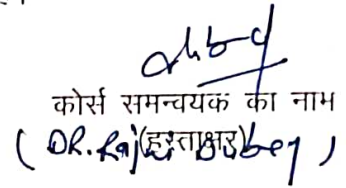 कोर्स समन्वयक का नाम
(हस्ताक्षर)
(DR. Raj Dubey)